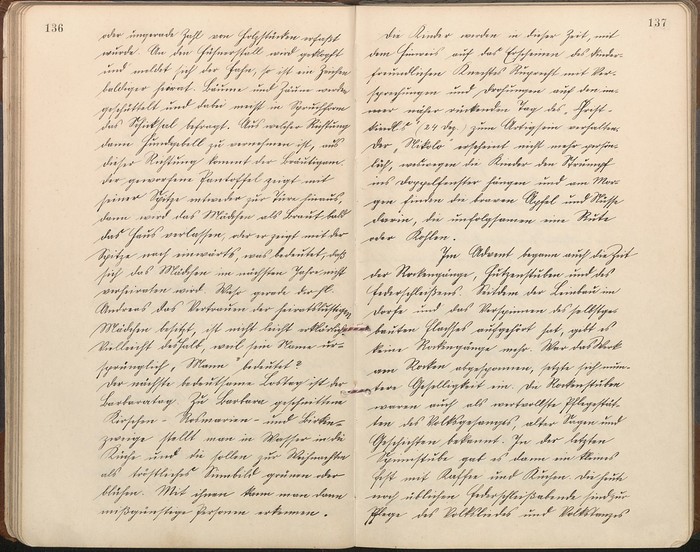 136
oder ungerade Zahl von Holzstücken erfaßt
wurde. An den Hühnerstall wird geklopft
und meldet sich der Hahn, so ist ein Zeichen
baldiger Heirat. Bäume und Zäune werden
geschüttelt und dabei meist in Spruchform
das Schicksal befragt. Aus welcher Richtung
dann Hundgebell zu vernehmen ist, aus
dieser Richtung kommt der Bräutigam.
Der geworfene Pantoffel zeigt mit
seiner Spitze entweder zur Türe hinaus,
dann wird das Mädchen als Braut bald
das Haus verlassen, oder er zeigt mit der
Spitze nach einwärts, was bedeutet, daß
sich das Mädchen im nächsten Jahre nicht
verheiraten wird. Wieso gerade der hl.
Andreas das Vertrauen der heiratslustigen
Mädchen besitzt, ist nicht leicht erklärlich.
Vielleicht deshalb, weil sein Name ur-
sprünglich „Mann" bedeutet?
Der nächste bedeutsame Lostag ist der
Barbaratag. Zu Barbara geschnittene
Kirschen- Rosmarien- und Birken-
zweige stellt man in Wasser in die
Küche und die sollen zur Weihnachten
als tröstliches Sinnbild grünen oder
blühen. Mit ihnen kann man dann
mißgünstige Personen erkennen.
137
Die Kinder werden in dieser Zeit, mit
dem Hinweis auf das Erscheinen des kinder-
freundlichen Knechtes Ruprecht mit Ver-
sprechungen und Drohungen auf den im-
mer näher rückenden Tag des
(24 Dez.) zum Artigsein verhalten.
Der „Nikolo" erscheint nicht mehr persön-
lich, weswegen die Kinder den Strumpf
ins Doppelfenster hängen und am Mor-
gen finden die braven Äpfel und Nüsse
darin, die unfolgsamen eine Rute
oder Kohlen.
Im Advent begann auch die Zeit
der Rockengänge, Hutzenstuben und des
Federschleißens. Seitdem der Leinbau im
Dorfe und das Verspinnen des selbstge-
bauten Flachses aufgehört hat, gibt es
keine Rockengänge mehr. War das Werk
am Rocken abgesponnen, setzte sich mun-
tere Geselligkeit ein. Die Rockenstuben
waren auch als wertvollste Pflegestät-
ten des Volksgesanges, alter Sagen und
Geschichten bekannt. In der letzten
Spinnstube gab es dann ein kleines
Fest mit Kaffee und Kuchen. Die heute
noch üblichen Federschleißabende sind zur
Pflege des Volksliedes und Volkstanzes